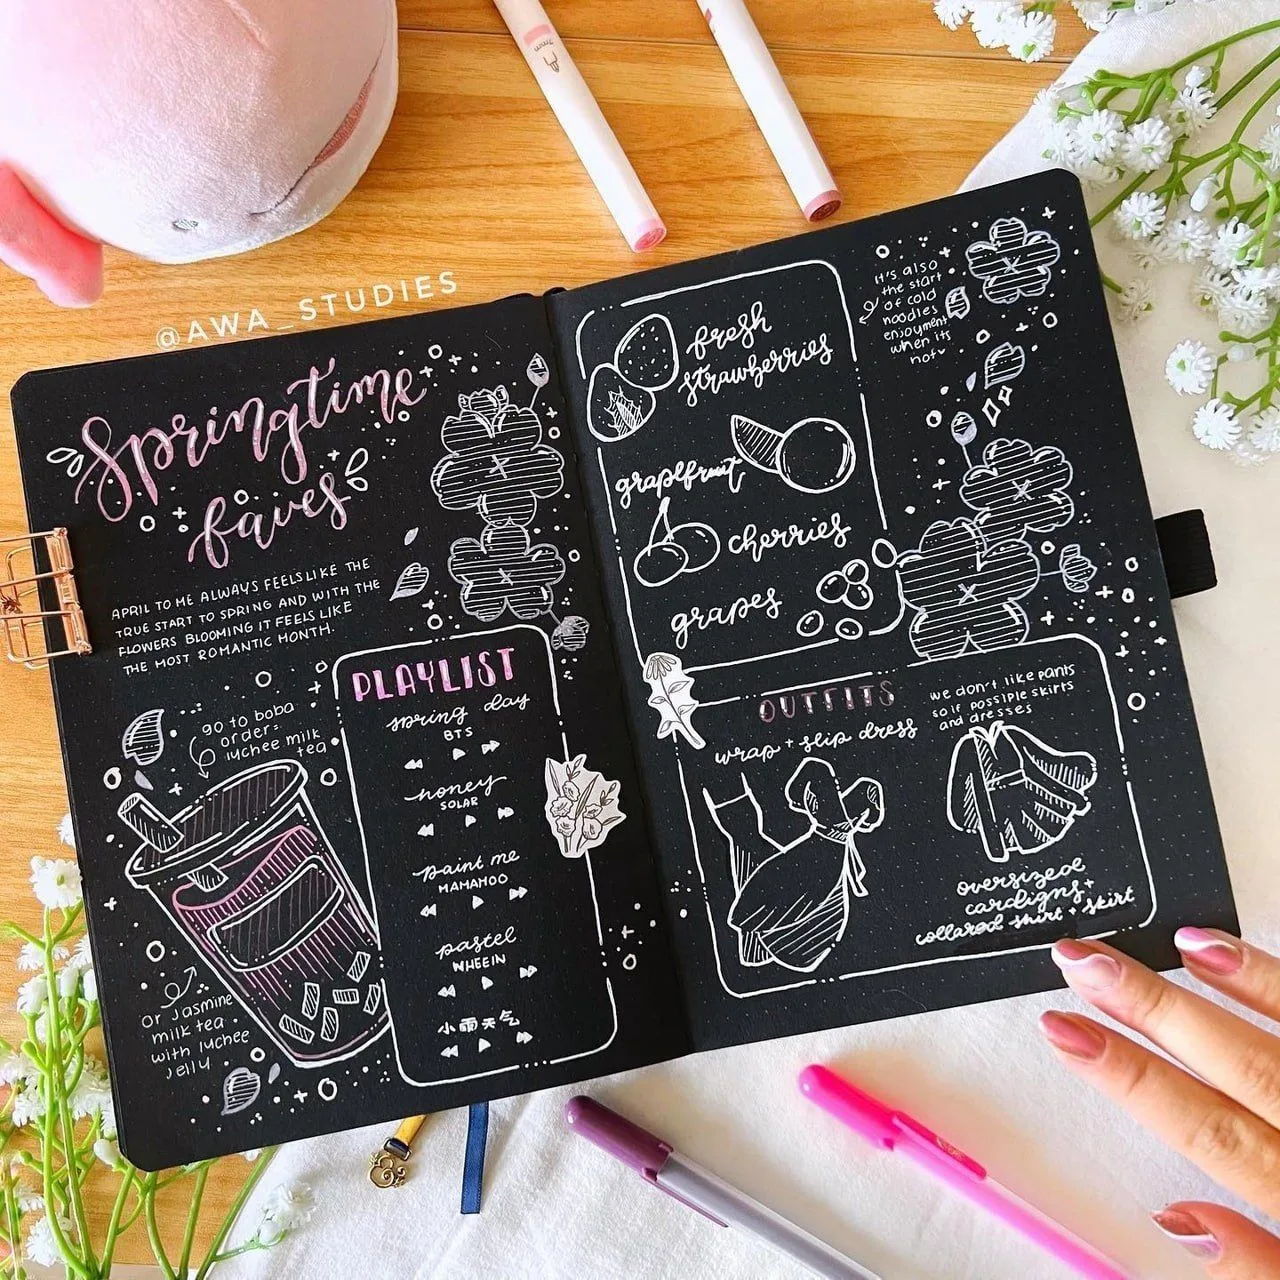 @AWA_STUDIES
Springtime
faves
APRIL TO ME ALWAYS FEELS LIKE THE
TRUE START TO SPRING AND WITH THE
FLOWERS BLOOMING IT FEELS LIKE
THE MOST ROMANTIC MONTH.
go to boba
order:
lychee milk
tea
or Jasmine
milk tea
with lychee
jelly
PLAYLIST
spring day
BTS
honey
SOLAR
paint me
MAMAMOO
pastel
WHEEIN
小雨天气
fresh
strawberries
grapefruit
cherries
grapes
it's also
the start
of cold
noodles
enjoyment
when its
hot
OUTFITS
we don't like pants
so if possiple skirts
and dresses
wrap + slip dress
oversized
cardigns +
collared shirt + skirt
7mm